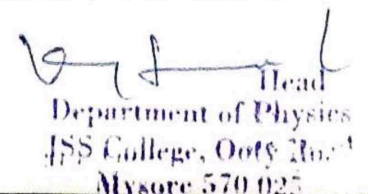 Head
Department of Physics
JSS College, Ooty Road
Mysore 570 025